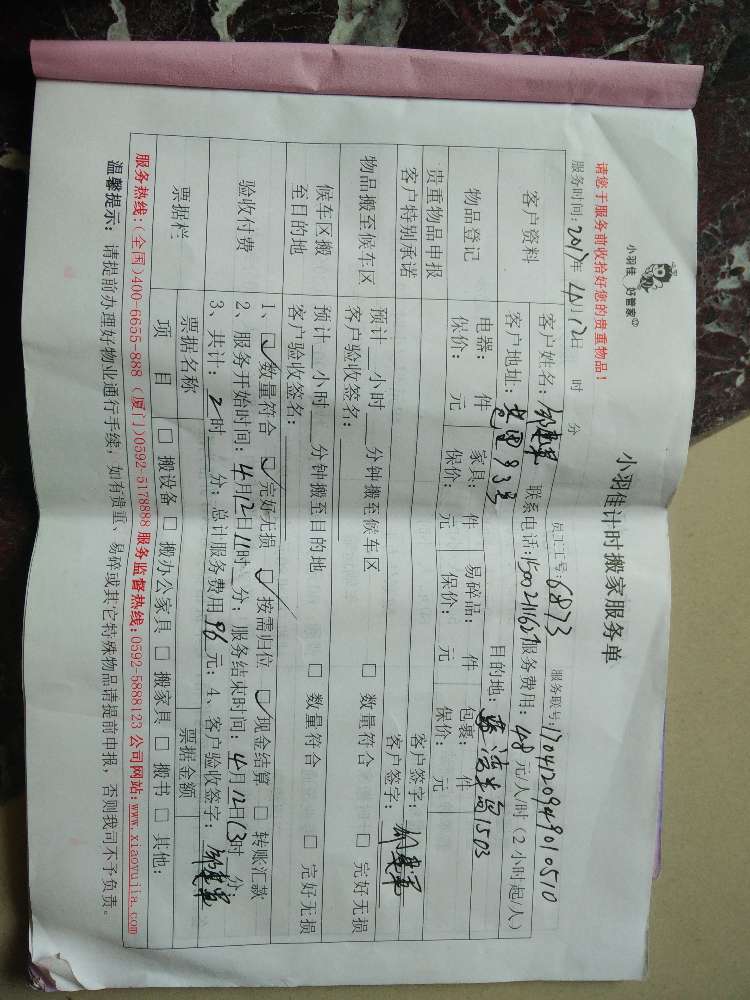 小羽佳 好管家
小羽佳计时搬家服务单
请您于服务前收拾好您的贵重物品！
员工工号：6873 服务联号：1704120949010510
服务时间：2017年4月12日 时 分
客户资料
客户姓名： 联系电话： 服务费用：48元/人/时（2小时起/人）
客户地址： 93号 目的地： 1503
物品登记
电器： 件 家具： 件 易碎品： 件 包裹： 件
保价： 元 保价： 元 保价： 元 保价： 元
贵重物品申报 客户签字：
客户特别承诺 客户签字：
物品搬至候车区
预计__小时__分钟搬至候车区 □ 数量符合 □ 完好无损
客户验收签名：
候车区搬至目的地
预计__小时__分钟搬至目的地 □ 数量符合 □ 完好无损
客户验收签名：
验收付费
1、☑ 数量符合 ☑ 完好无损 ☑ 按需归位 ☑ 现金结算 □ 转账汇款
2、服务开始时间：4月12日11时__分；服务结束时间：4月12日13时__分；
3、共计：2时__分；总计服务费用96元；4、客户验收签字：
票据栏
票据名称 票据金额
项目 □ 搬设备 □ 搬办公家具 □ 搬家具 □ 搬书 □ 其他：
服务热线：(全国)400-6655-888 (厦门)0592-5178888 服务监督热线：0592-5888123 公司网站：www.xiaoyujia.com
温馨提示：请提前办理好物业通行手续，如有贵重、易碎或其它特殊物品请提前申报，否则我司不予负责。